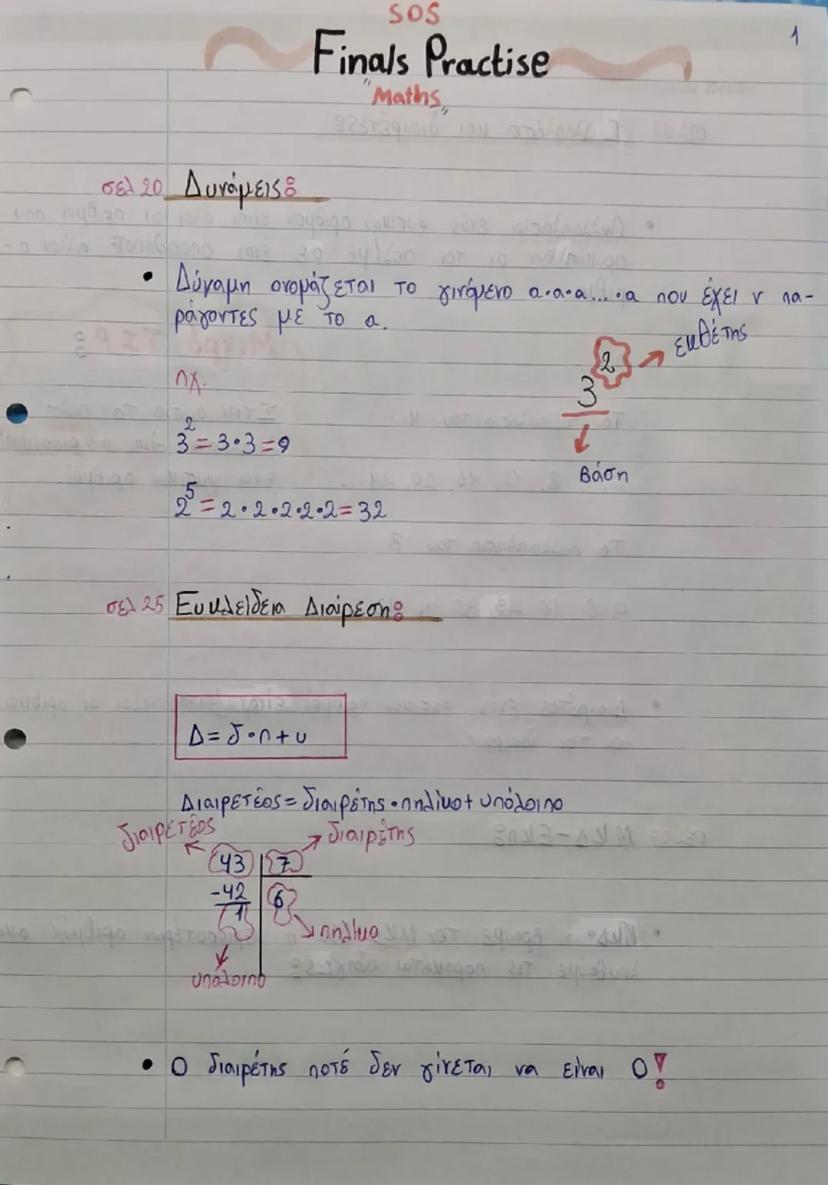 SOS
1
Finals Practise
"Maths"
σελ 20 Δυνάμεις:
• Δύναμη ονομάζεται το γινόμενο α·α·α....·α που έχει ν πα-
ράγοντες με το α.
πχ.
3² = 3·3 = 9
2⁵ = 2·2·2·2·2 = 32
3² εκθέτης
βάση
σελ 25 Ευκλείδεια Διαίρεση:
Δ = δ·π + υ
Διαιρετέος = διαιρέτης · πηλίκο + υπόλοιπο
διαιρετέος διαιρέτης
43 7
-42 6
1 πηλίκο
υπόλοιπο
• Ο διαιρέτης ποτέ δεν γίνεται να είναι 0!